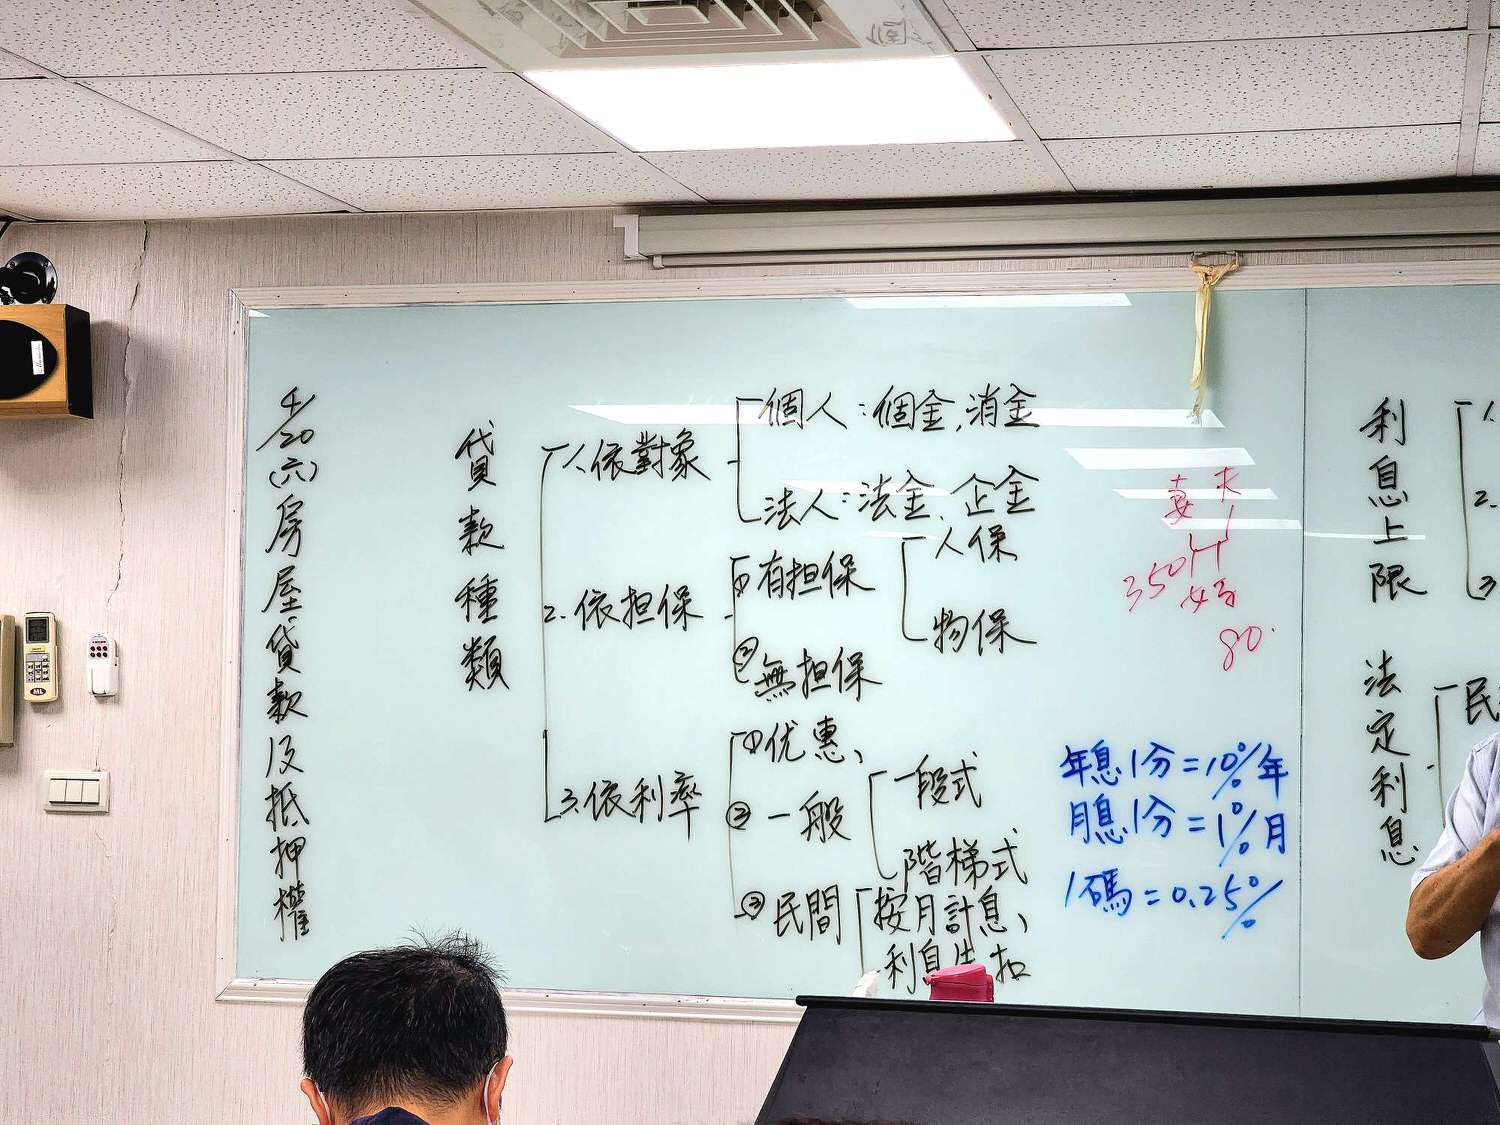 4/20(六)房屋貸款及抵押權
貸款種類
1.依對象
個人：個金,消金
法人：法金、企金
2.依担保
①有担保
人保
物保
②無担保
3.依利率
①优惠、
②一般
一段式
階梯式
③民間
按月計息、
利息先扣
妻 夫
350
80
年息1分=10%年
月息1分=1%月
1碼=0.25%
利息上限
1.
2.
3
法定利息
民
ML